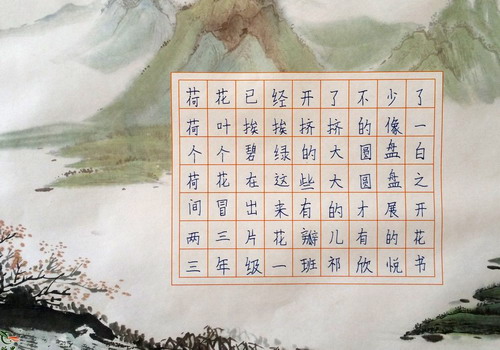 荷花已经开了不少了
荷叶挨挨挤挤的像一
个个碧绿的大圆盘白
荷花在这些大圆盘之
间冒出来有的才展开
两三片花瓣儿有的花
三年级一班祁欣悦书